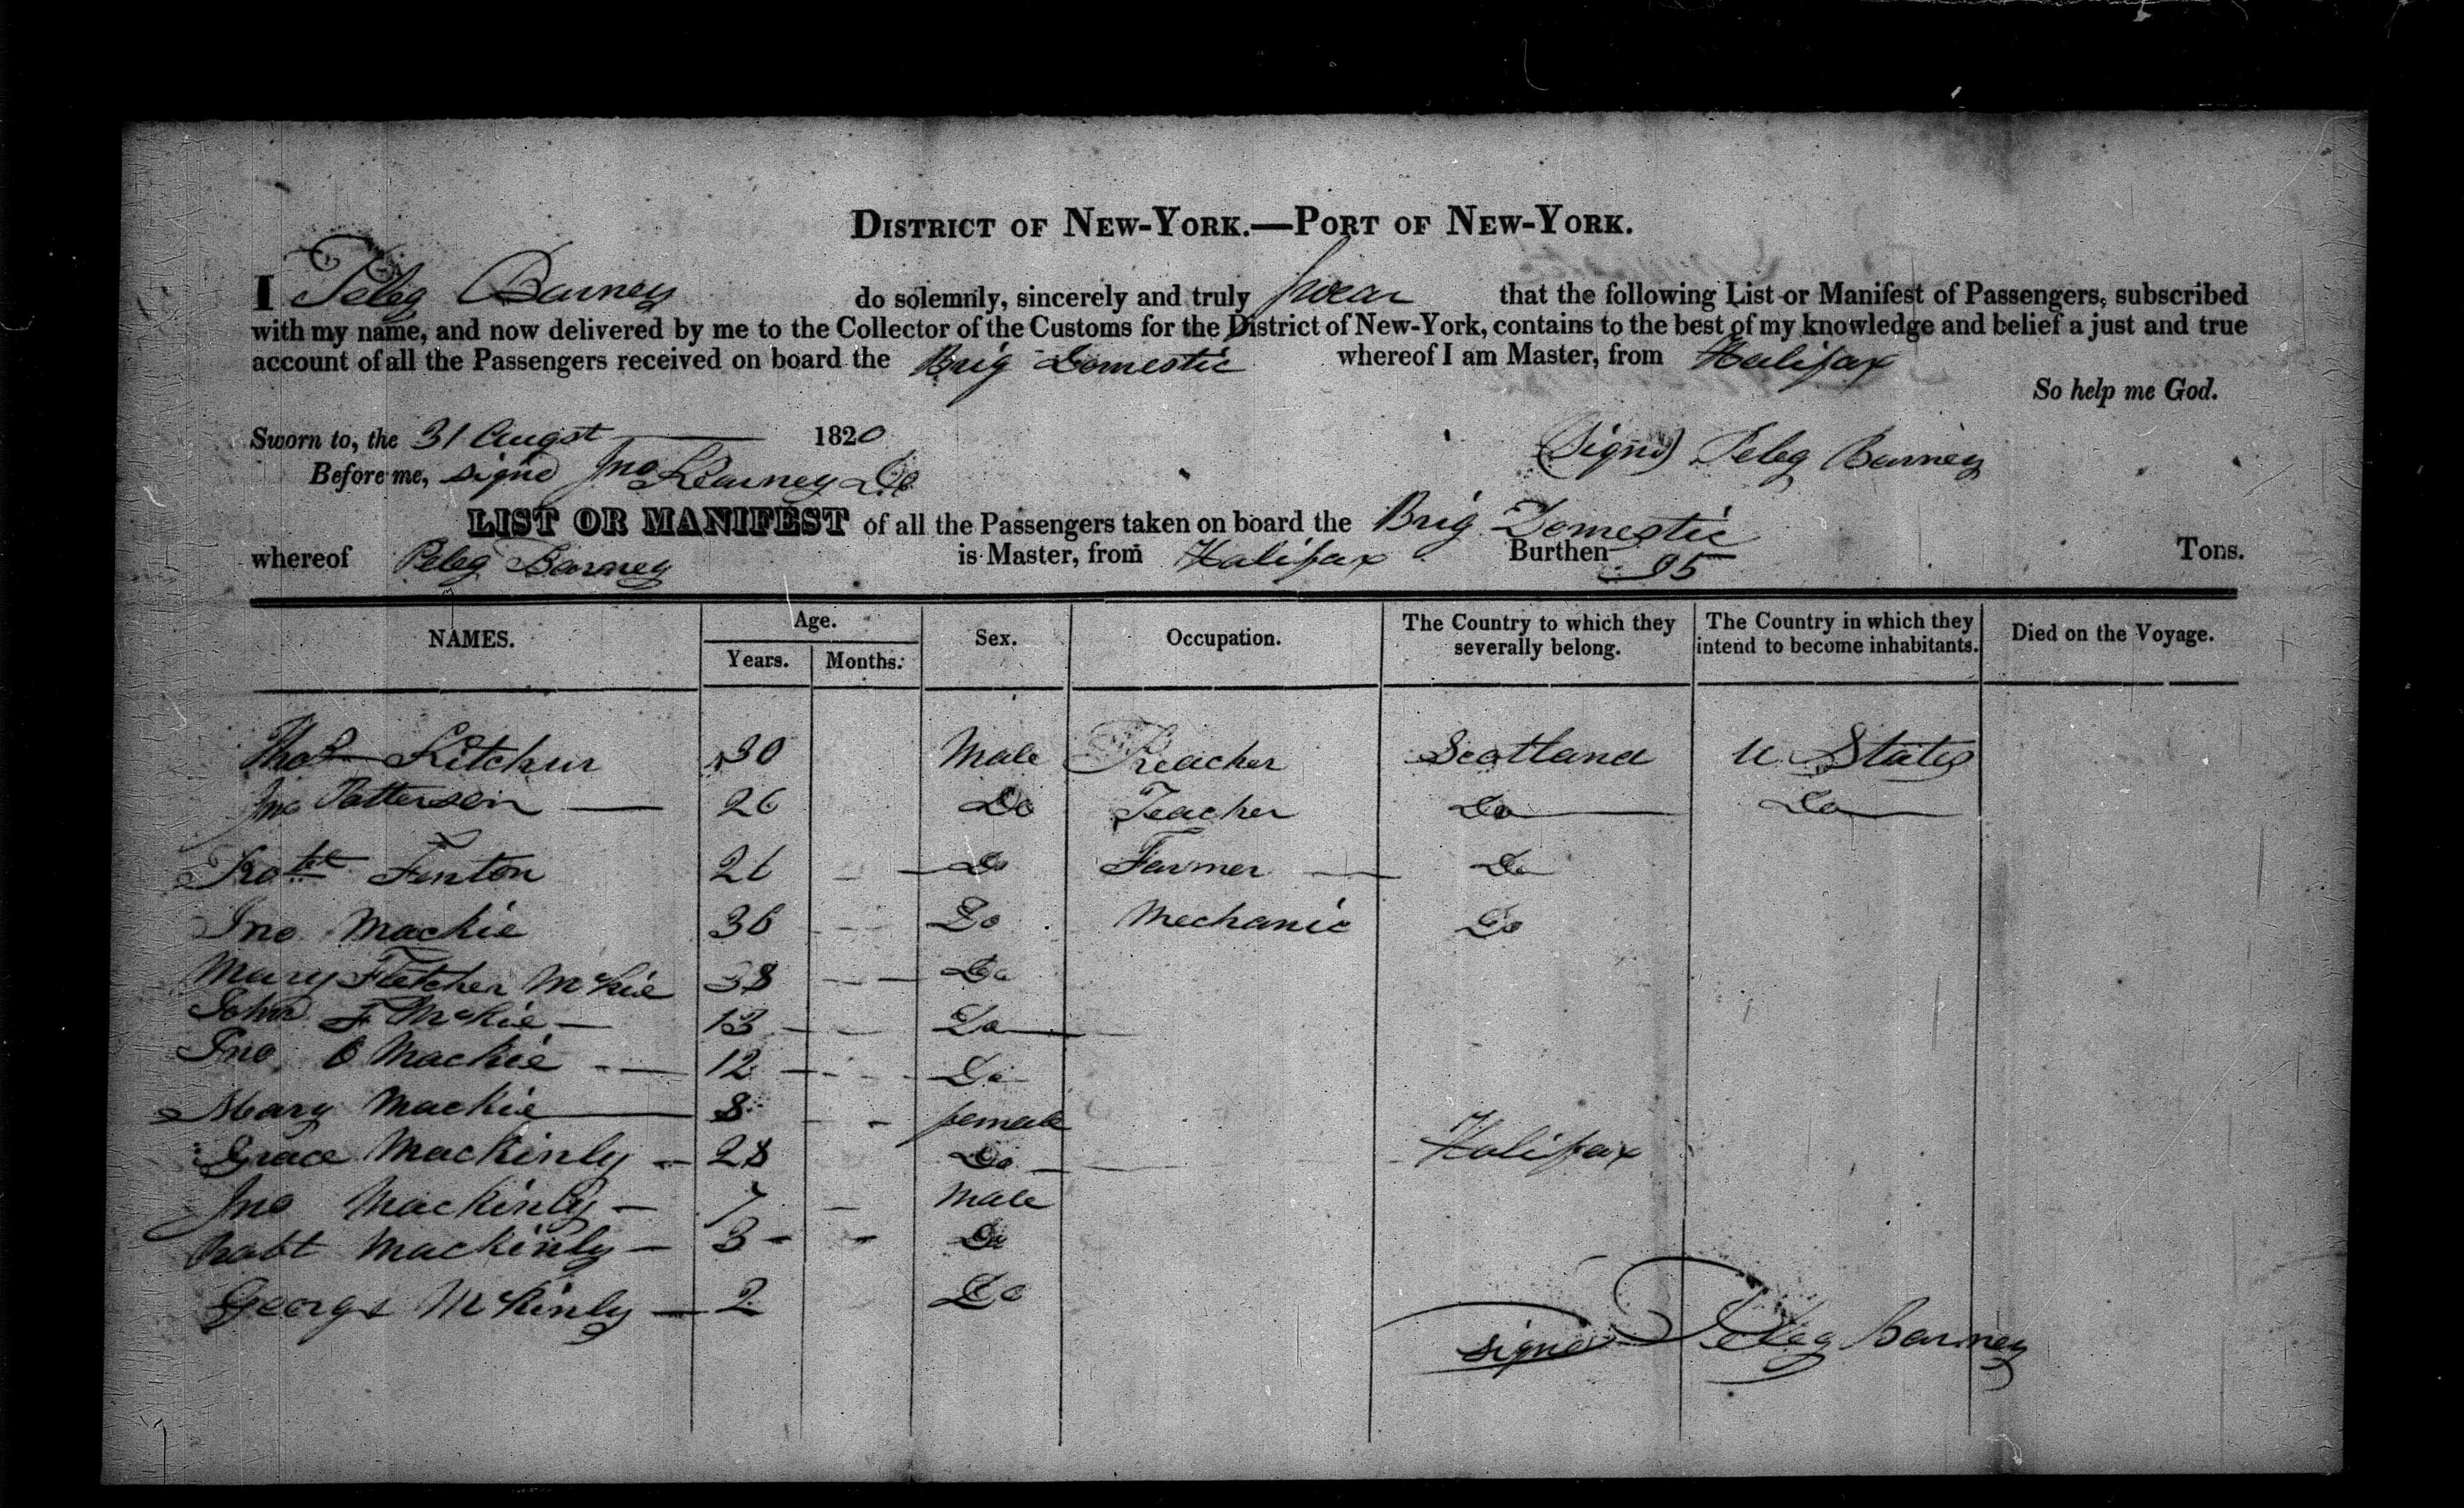 DISTRICT OF NEW-YORK.—PORT OF NEW-YORK.
I Peleg Barney do solemnly, sincerely and truly swear that the following List or Manifest of Passengers, subscribed
with my name, and now delivered by me to the Collector of the Customs for the District of New-York, contains to the best of my knowledge and belief a just and true
account of all the Passengers received on board the Brig Domestic whereof I am Master, from Halifax
So help me God.
Sworn to, the 31 Augst 1820 (Signd) Peleg Barney
Before me, signd Jno Kearney
LIST OR MANIFEST of all the Passengers taken on board the Brig Domestic
whereof Peleg Barney is Master, from Halifax Burthen 95 Tons.
NAMES. Age. Years. Months. Sex. Occupation. The Country to which they severally belong. The Country in which they intend to become inhabitants. Died on the Voyage.
Thos Kitchur 30 Male Scotland U States
Jno Patterson — 26 Do Teacher Do Do
Robt Fenton 26 Do Farmer — Do
Jno Mackie 36 Do Mechanic Do
Mary Fletcher McKie 38 — Do
John F McKie — 13 — Do
Jno Mackie — 12 — Do
Mary Mackie — 8 female
Grace Mackinly — 28 Do Halifax
Jno Mackinly — 7 — Male
Robt Mackinly — 3 - - Do
George McKinly — 2 Do
signd Peleg Barney